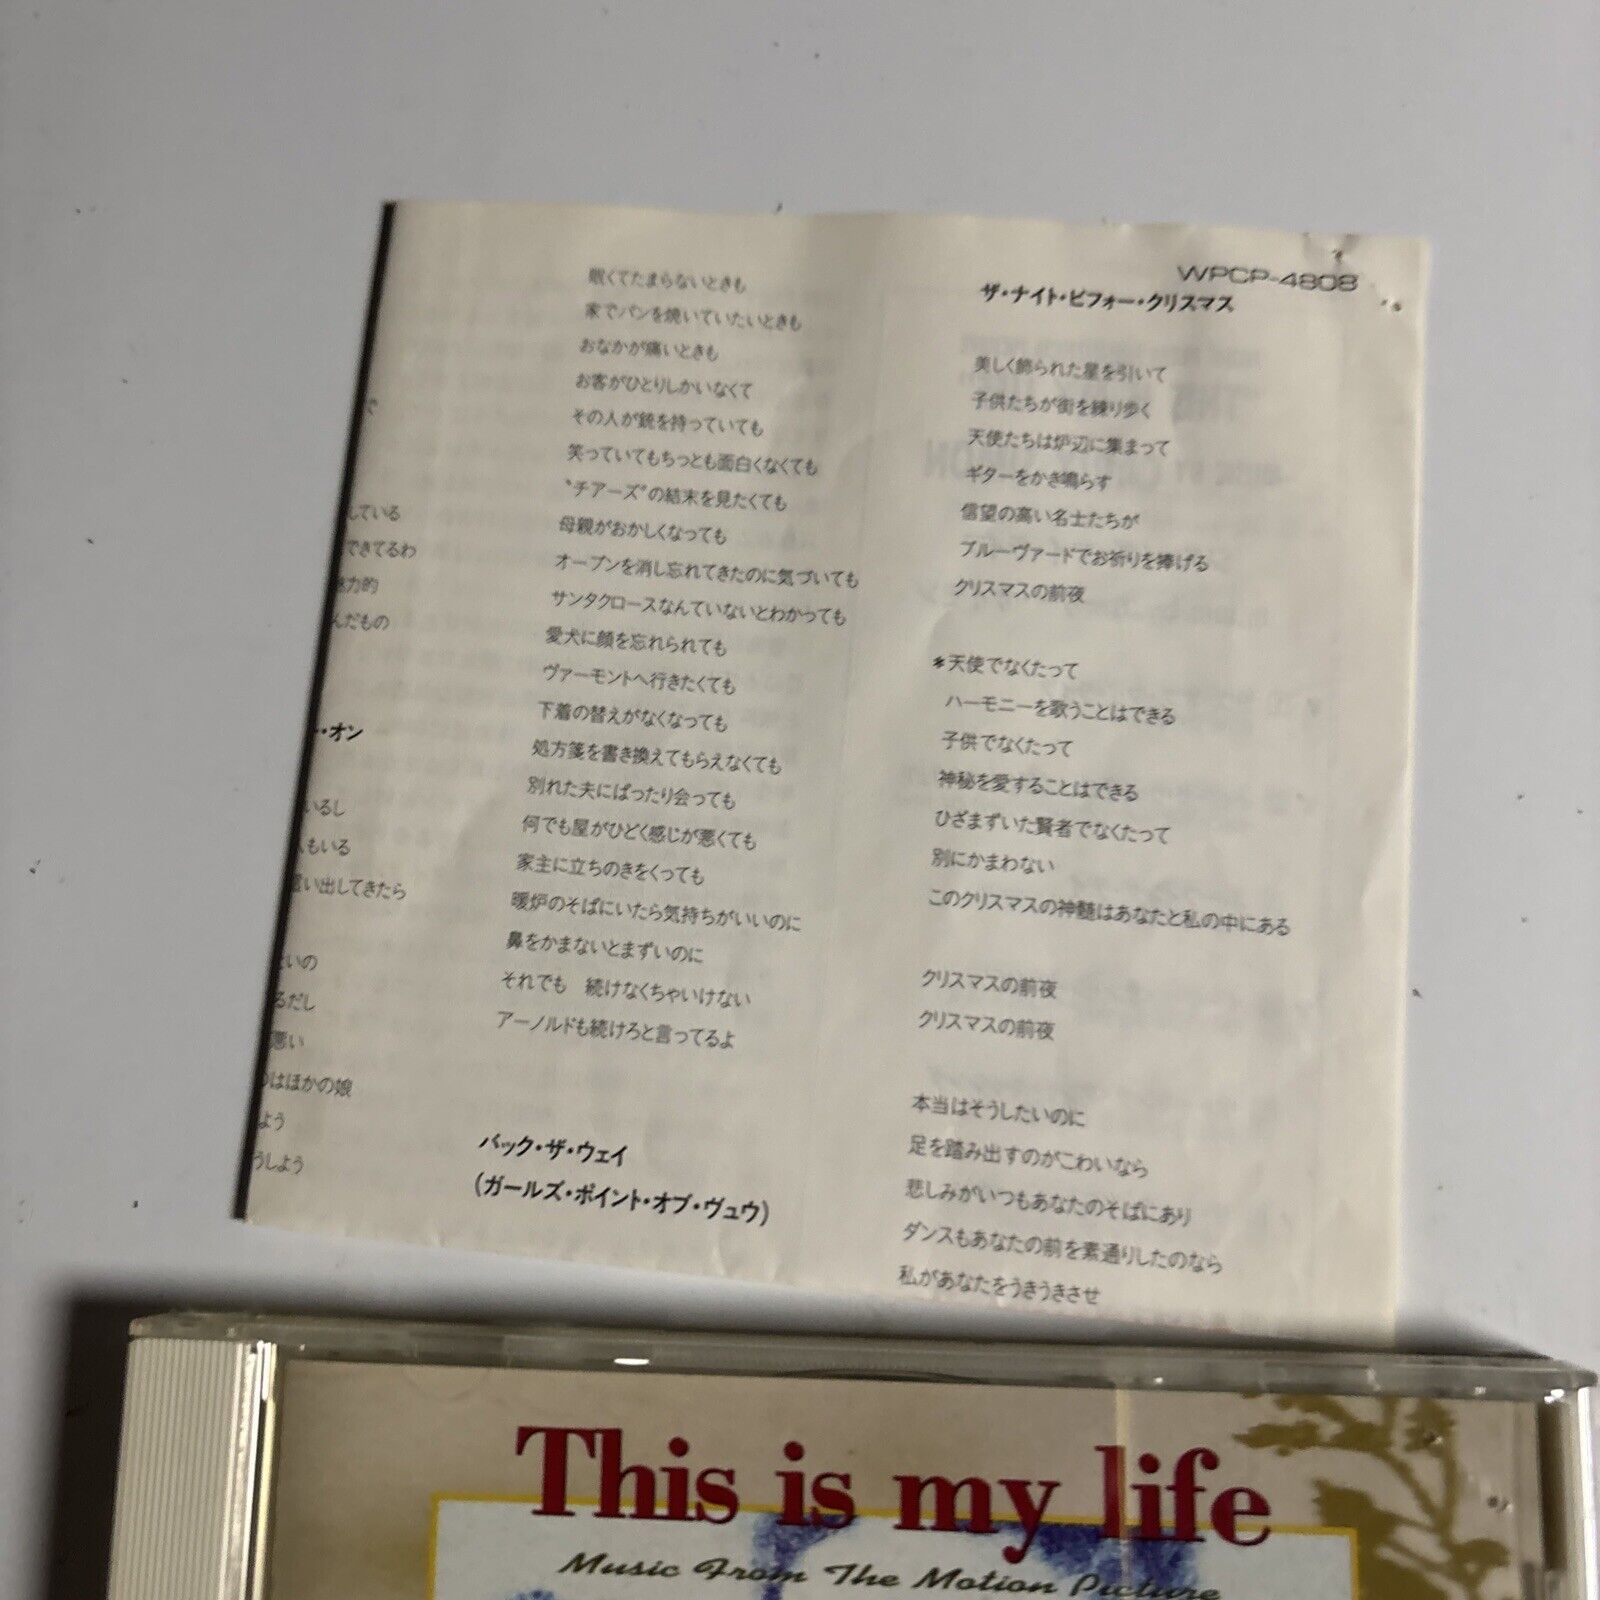 している
できてるわ
力的
んだもの
ー・オン
いるし
もいる
い出してきたら
いの
るだし
悪い
はほかの娘
よう
うしよう
眠くてたまらないときも
家でパンを焼いていたいときも
おなかが痛いときも
お客がひとりしかいなくて
その人が銃を持っていても
笑っていてもちっとも面白くなくても
“チアーズ”の結末を見たくても
母親がおかしくなっても
オーブンを消し忘れてきたのに気づいても
サンタクロースなんていないとわかっても
愛犬に顔を忘れられても
ヴァーモントへ行きたくても
下着の替えがなくなっても
処方箋を書き換えてもらえなくても
別れた夫にばったり会っても
何でも屋がひどく感じが悪くても
家主に立ちのきをくっても
暖炉のそばにいたら気持ちがいいのに
鼻をかまないとまずいのに
それでも 続けなくちゃいけない
アーノルドも続けろと言ってるよ
バック・ザ・ウェイ
(ガールズ・ポイント・オブ・ヴュウ)
WPCP-4808
ザ・ナイト・ビフォー・クリスマス
美しく飾られた星を引いて
子供たちが街を練り歩く
天使たちは炉辺に集まって
ギターをかき鳴らす
信望の高い名士たちが
ブルーヴァードでお祈りを捧げる
クリスマスの前夜
*天使でなくたって
ハーモニーを歌うことはできる
子供でなくたって
神秘を愛することはできる
ひざまずいた賢者でなくたって
別にかまわない
このクリスマスの神髄はあなたと私の中にある
クリスマスの前夜
クリスマスの前夜
本当はそうしたいのに
足を踏み出すのがこわいなら
悲しみがいつもあなたのそばにあり
ダンスもあなたの前を素通りしたのなら
私があなたをうきうきさせ
This is my life
Music From The Motion Picture